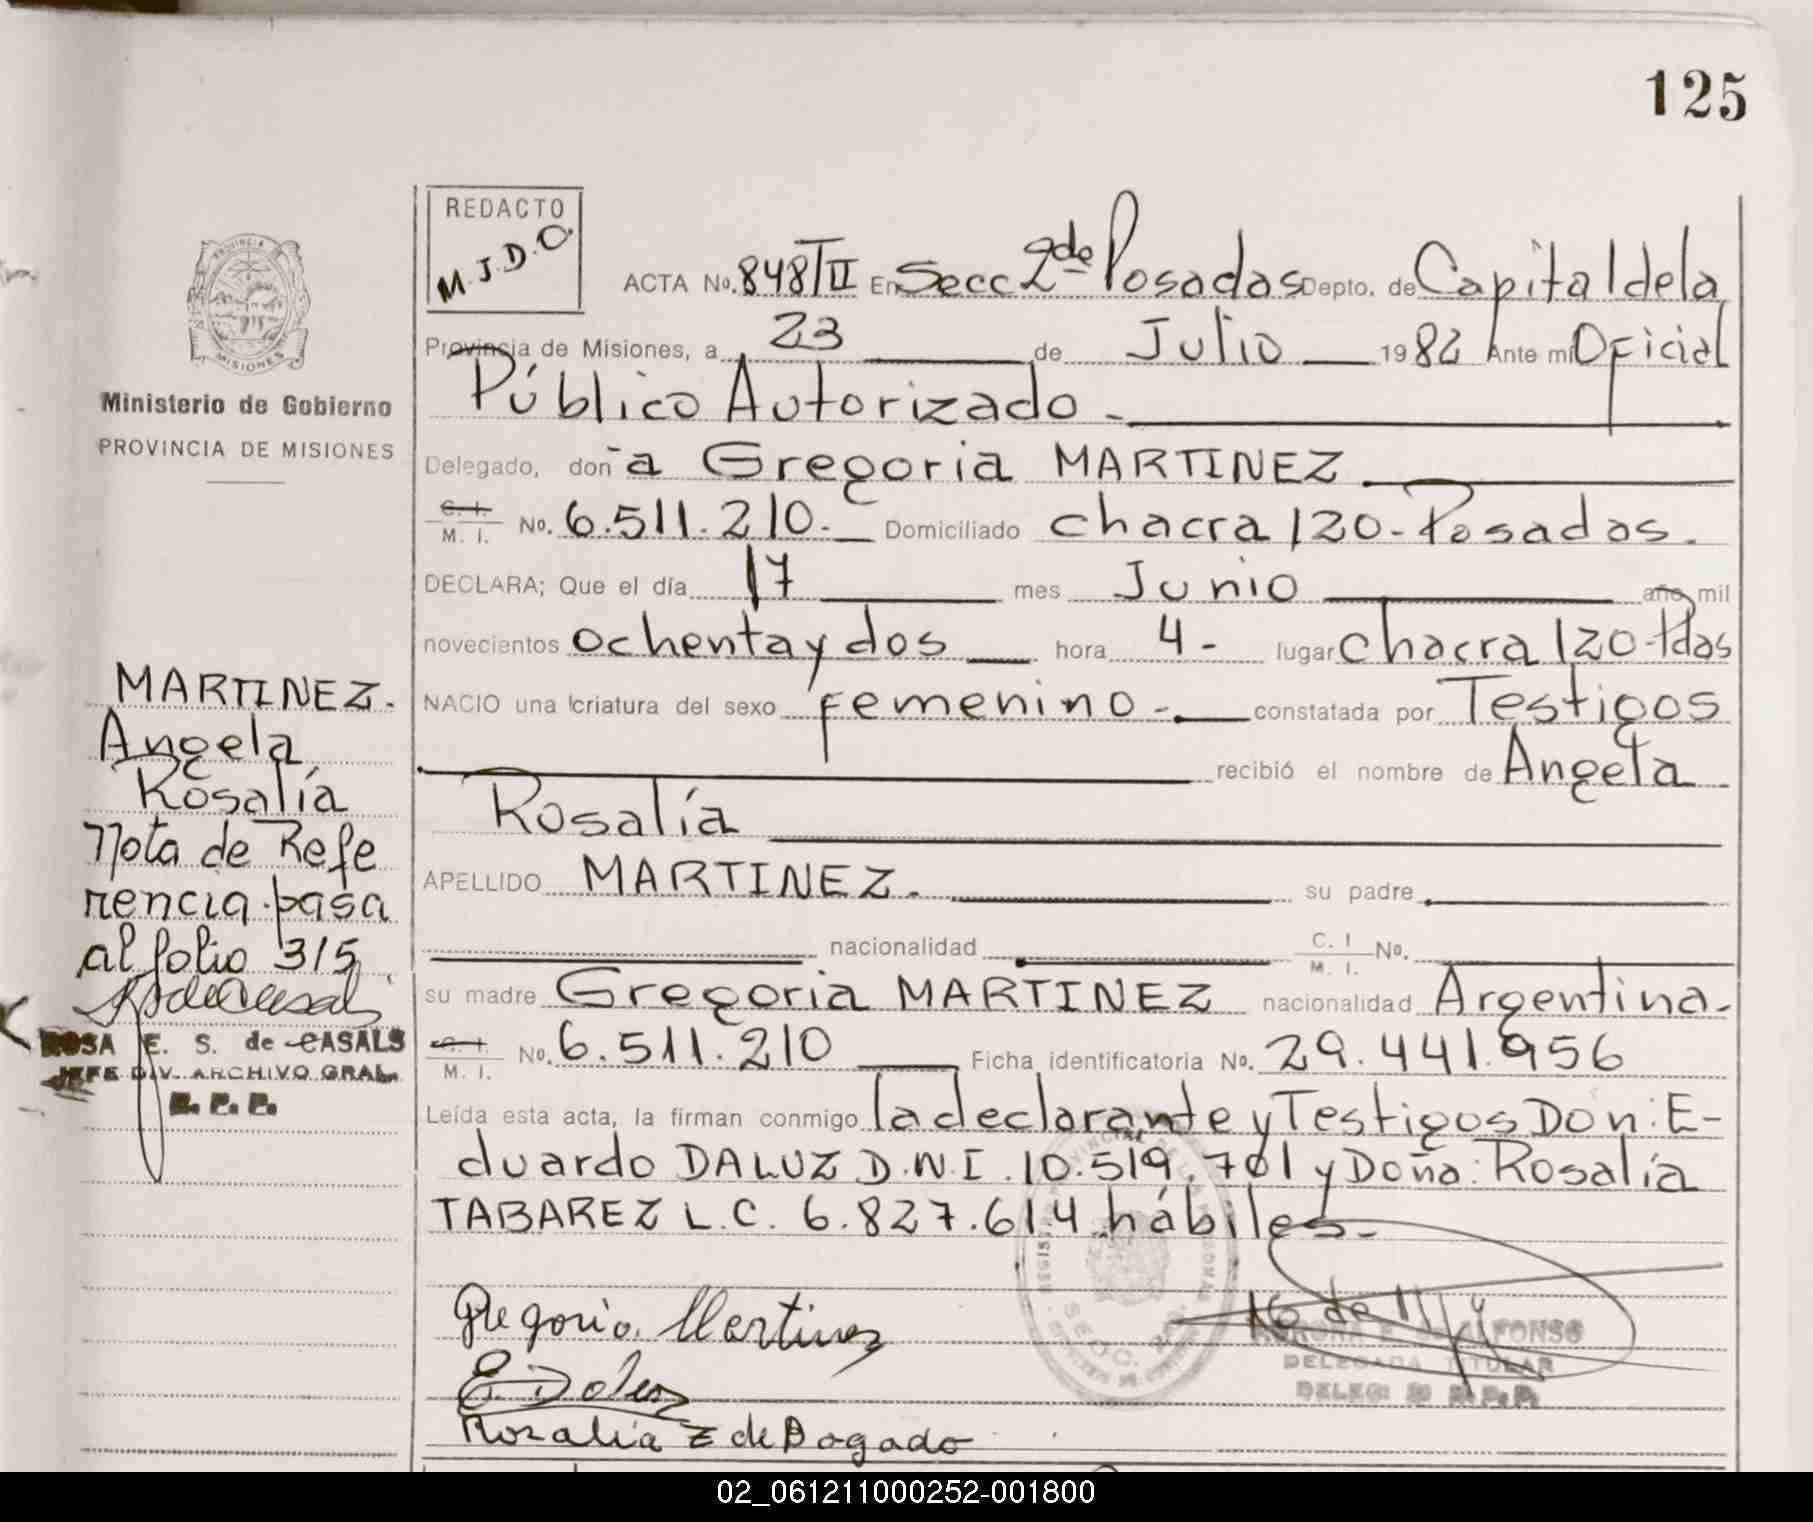 125
REDACTO
M.J.D.O.
PROVINCIA
MISIONES
Ministerio de Gobierno
PROVINCIA DE MISIONES
ACTA No. 848/II En Secc 2da Posadas Depto. de Capital de la
Provincia de Misiones, a 23 de Julio 1982 Ante mi Oficial
Público Autorizado.
Delegado, don a Gregoria MARTINEZ
C. I. M. I. No. 6.511.210. Domiciliado chacra 120-Posadas.
DECLARA; Que el día 17 mes Junio año mil
novecientos ochenta y dos hora 4- lugar chacra 120-Pdas
NACIO una criatura del sexo femenino. constatada por Testigos
recibió el nombre de Angela
Rosalía
APELLIDO MARTINEZ. su padre
nacionalidad C. I M. I. No.
su madre Gregoria MARTINEZ nacionalidad Argentina.
C. I. M. I. No. 6.511.210 Ficha identificatoria No. 29.441.956
Leída esta acta, la firman conmigo la declarante y Testigos Don: E-
duardo DALUZ D.N.I. 10.519.701 y Doña: Rosalía
TABAREZ L.C. 6.827.614 hábiles.-
MARTINEZ.
Angela
Rosalía
Nota de Refe
rencia pasa
al folio 315
ROSA E. S. de CASALS
JEFE DIV. ARCHIVO GRAL.
R. P. P.
Gregoria Martinez
Rozalia de Bogado
ALFONSO
DELEGADA TITULAR
02_061211000252-001800